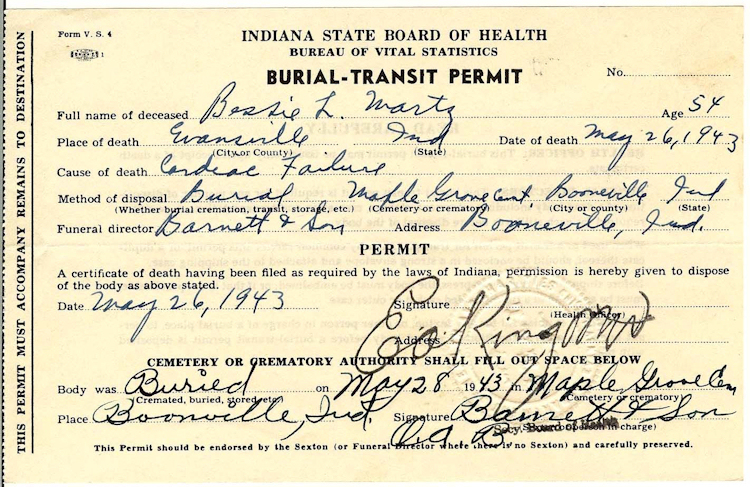 Form V. S. 4
INDIANA STATE BOARD OF HEALTH
BUREAU OF VITAL STATISTICS
BURIAL-TRANSIT PERMIT
No.
Full name of deceased Bessie L. Wartz Age 54
Place of death Evansville Ind Date of death May 26, 1943
(City or County) (State)
Cause of death Cardiac Failure
Method of disposal Burial Maple Grove Cem, Booneville Ind
(Whether burial cremation, transit, storage, etc.) (Cemetery or crematory) (City or county) (State)
Funeral director Barnett & Son Address Booneville, Ind.
PERMIT
A certificate of death having been filed as required by the laws of Indiana, permission is hereby given to dispose
of the body as above stated.
Date May 26, 1943 Signature
(Health Officer)
Address
CEMETERY OR CREMATORY AUTHORITY SHALL FILL OUT SPACE BELOW
Body was Buried on May 28 1943 in Maple Grove Cem
(Cremated, buried, stored, etc.) (Cemetery or crematory)
Place Boonville, Ind. Signature Barnett & Son
Secy. Board of Health
This Permit should be endorsed by the Sexton (or Funeral Director where there is no Sexton) and carefully preserved.
THIS PERMIT MUST ACCOMPANY REMAINS TO DESTINATION